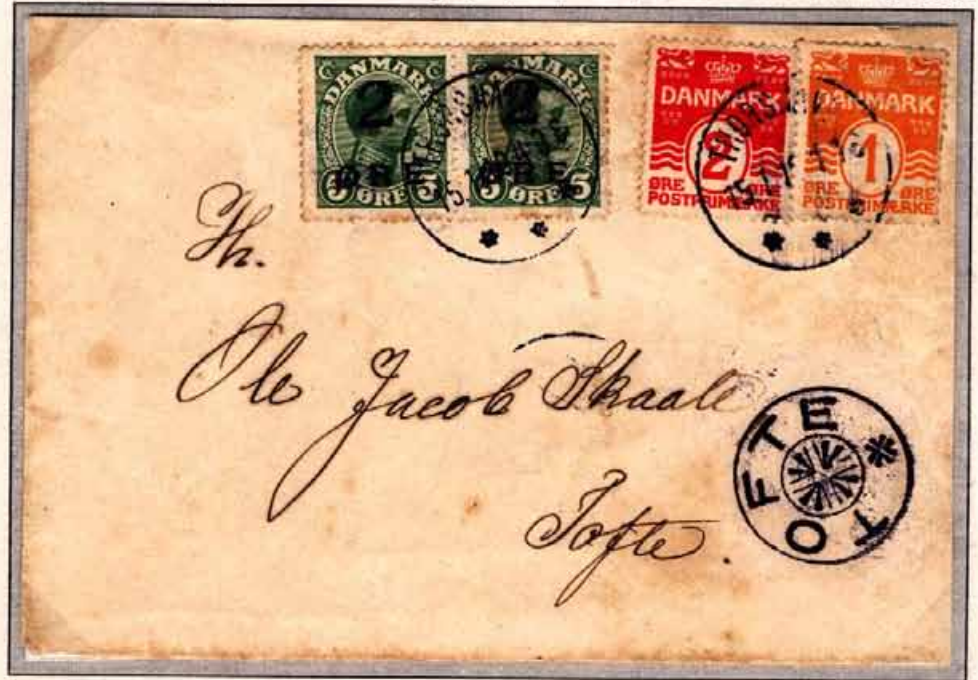 DANMARK
2
ØRE
5 ØRE 5
DANMARK
2
ØRE
5 ØRE 5
DANMARK
2
ØRE ØRE
POSTFRIMÆRKE
DANMARK
1
ØRE ØRE
POSTFRIMÆRKE
Hr.
Ole Jacob Skaale
Tofte.
TOFTE